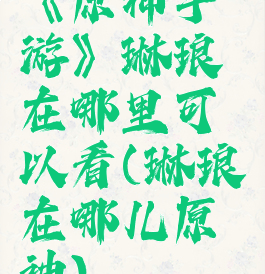 《原神手
游》琳琅
在哪里可
以看(琳琅
在哪儿原
神)